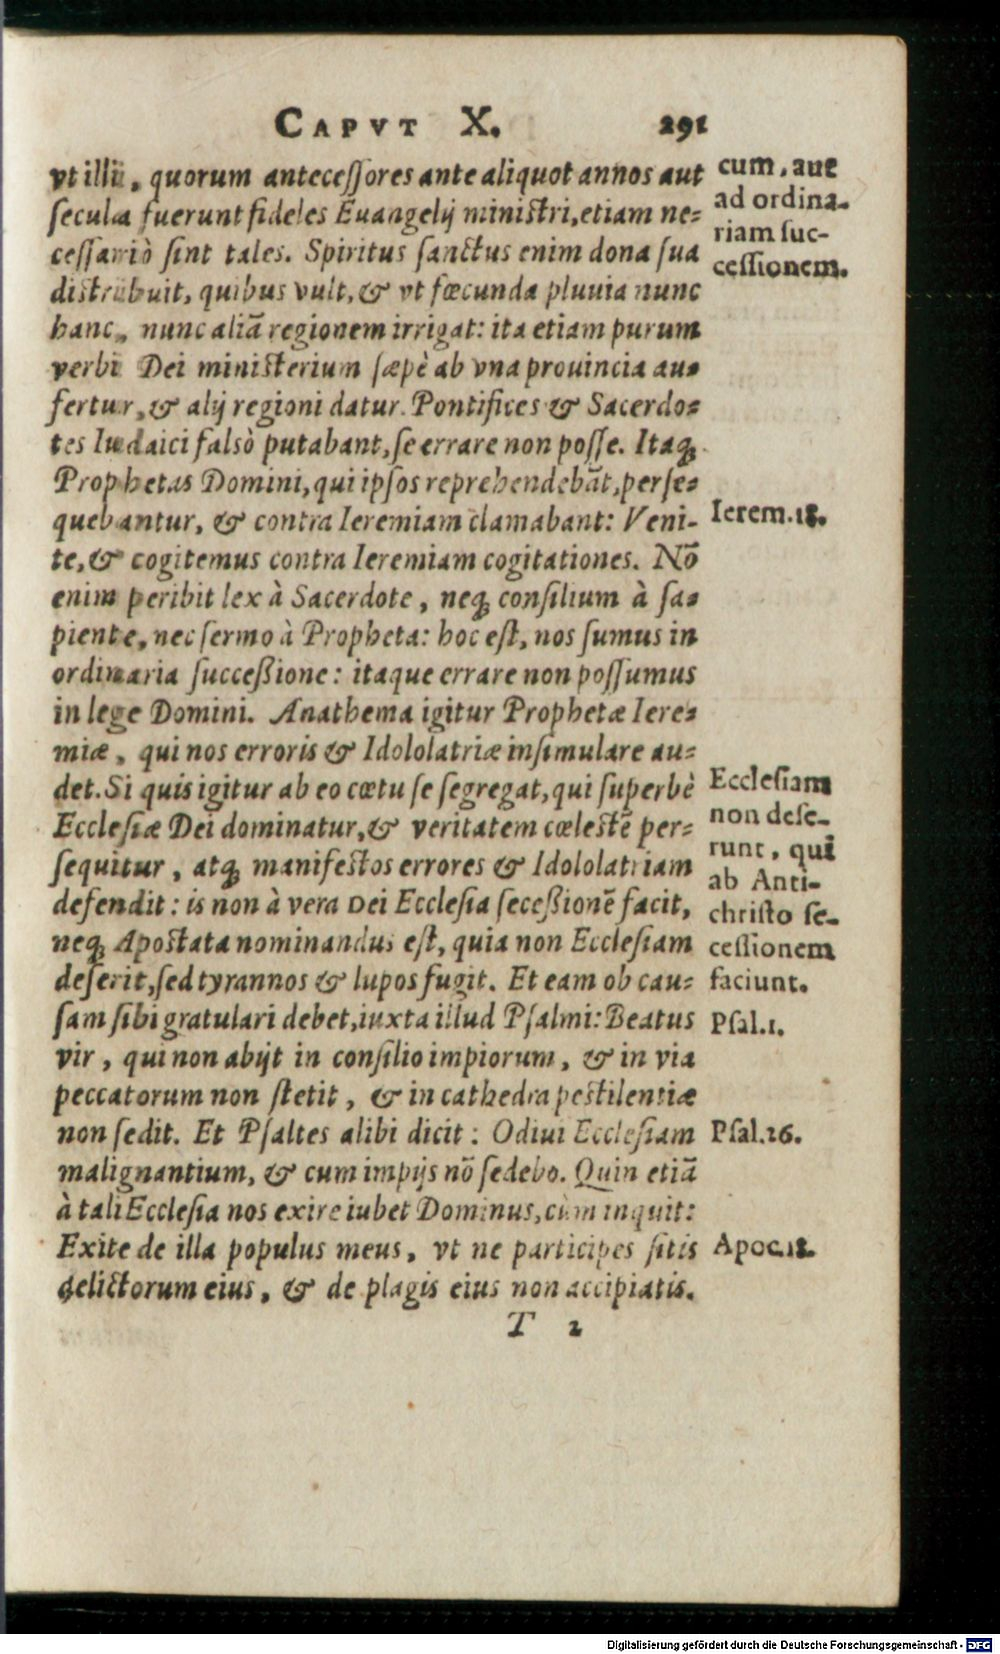 CAPVT X. 291
vt illi, quorum antecessores ante aliquot annos aut
secula fuerunt fideles Euangelij ministri, etiam ne=
cessariò sint tales. Spiritus sanctus enim dona sua
distribuit, quibus vult, & vt fœcunda pluuia nunc
hanc, nunc aliã regionem irrigat: ita etiam purum
verbi Dei ministerium sæpè ab vna prouincia au=
fertur, & alij regioni datur. Pontifices & Sacerdo=
tes Iudaici falsò putabant, se errare non posse. Itaq;
Prophetas Domini, qui ipsos reprehendebãt, perse=
quebantur, & contra Ieremiam clamabant: Veni-
te, & cogitemus contra Ieremiam cogitationes. Nõ
enim peribit lex à Sacerdote, neq; consilium à sa=
piente, nec sermo à Propheta: hoc est, nos sumus in
ordinaria successione: itaque errare non possumus
in lege Domini. Anathema igitur Prophetæ Iere=
miæ, qui nos erroris & Idololatriæ insimulare au=
det. Si quis igitur ab eo cœtu se segregat, qui superbè
Ecclesiæ Dei dominatur, & veritatem cœlestẽ per=
sequitur, atq; manifestos errores & Idololatriam
defendit: is non à vera Dei Ecclesia secessionẽ facit,
neq; Apostata nominandus est, quia non Ecclesiam
deserit, sed tyrannos & lupos fugit. Et eam ob cau=
sam sibi gratulari debet, iuxta illud Psalmi: Beatus
vir, qui non abijt in consilio impiorum, & in via
peccatorum non stetit, & in cathedra pestilentiæ
non sedit. Et Psaltes alibi dicit: Odiui Ecclesiam
malignantium, & cum impijs nõ sedebo. Quin etiã
à tali Ecclesia nos exire iubet Dominus, cùm inquit:
Exite de illa populus meus, vt ne participes sitis
delictorum eius, & de plagis eius non accipiatis.
T 2
cum, aut
ad ordina-
riam suc-
cessionem.
Ierem.18.
Ecclesiam
non dese-
runt, qui
ab Anti-
christo se-
cessionem
faciunt.
Psal.1.
Psal.26.
Apoc.18.
Digitalisierung gefördert durch die Deutsche Forschungsgemeinschaft - DFG